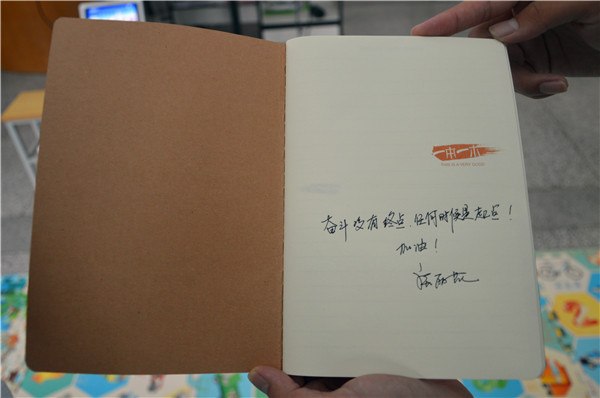 一本一本
THIS IS A VERY GOOD
奋斗没有终点，任何时候是起点！
加油！